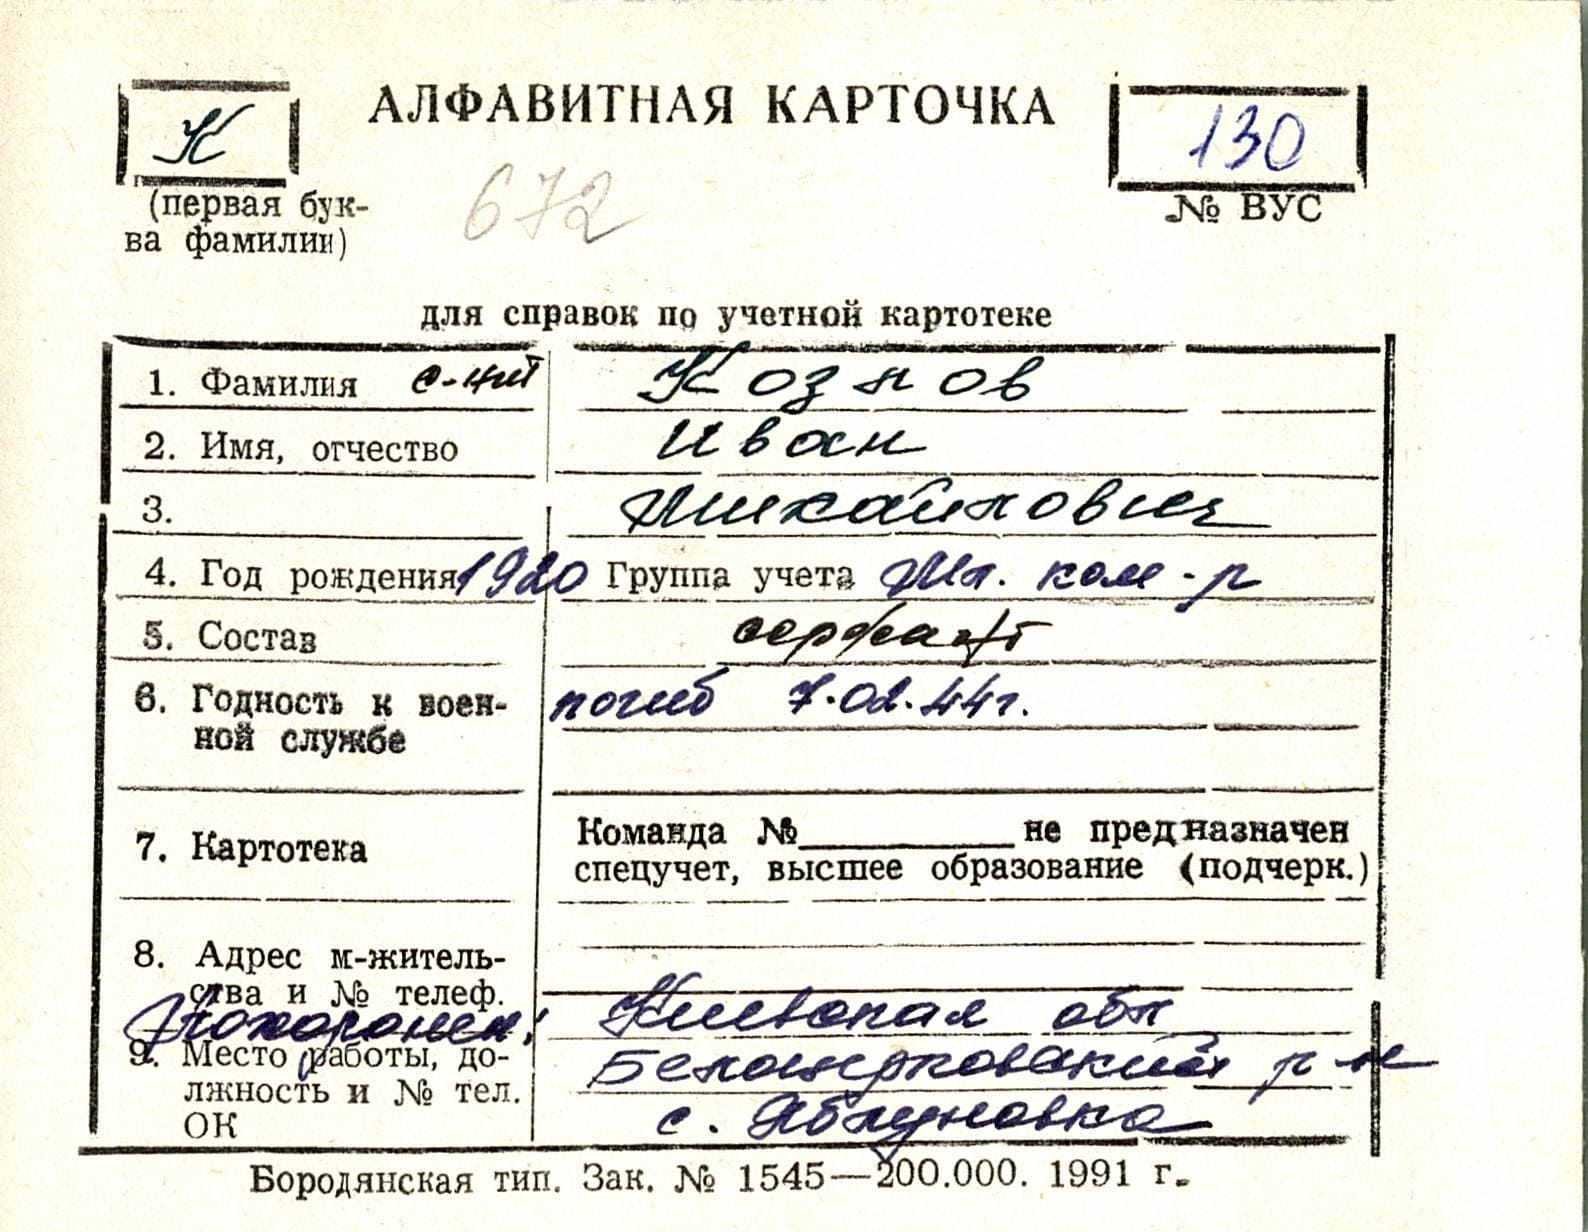 К
АЛФАВИТНАЯ КАРТОЧКА
130
(первая бук-
ва фамилии)
672
№ ВУС
для справок по учетной картотеке
1. Фамилия с-нт Козлов
2. Имя, отчество Иван
3. Михайлович
4. Год рождения 1920 Группа учета Мл. ком-р
5. Состав сержант
6. Годность к воен-
ной службе
погиб 7.02.44г.
7. Картотека
Команда №__________не предназначен
спецучет, высшее образование (подчерк.)
8. Адрес м-житель-
ства и № телеф.
Похоронен: Киевская обл
9. Место работы, до-
лжность и № тел.
ОК
Белоцерковский р-н
с. Яблуновка
Бородянская тип. Зак. № 1545—200.000. 1991 г.